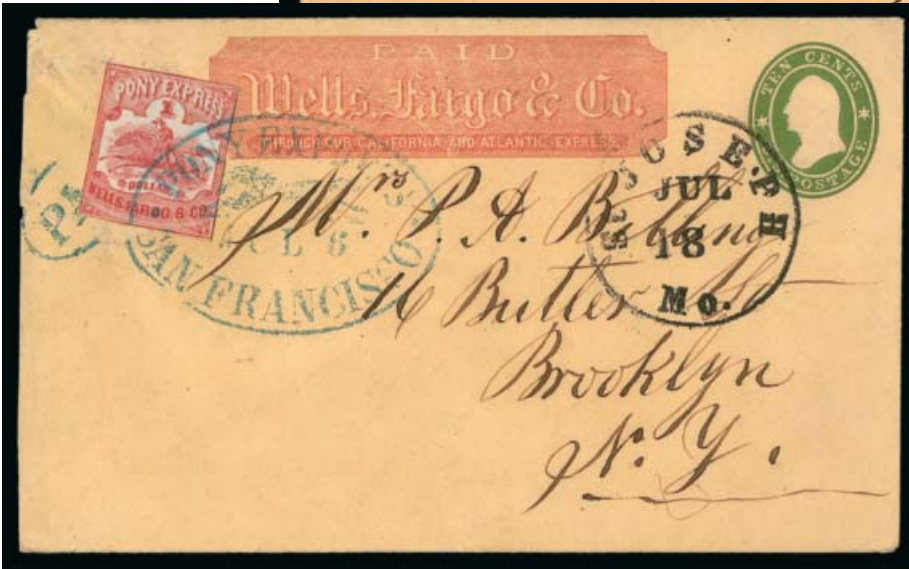 PAID
Wells, Fargo & Co.
THROUGH OUR CALIFORNIA AND ATLANTIC EXPRESS.
PONY EXPRESS
1
DOLLAR
WELLS, FARGO & CO.
PONY EXPRESS
JUL 6
SAN FRANCISCO
ST JOSEPH
JUL
18
Mo.
TEN CENTS
POSTAGE
Mrs. P. A.
16 Butler St
Brooklyn
N. Y.